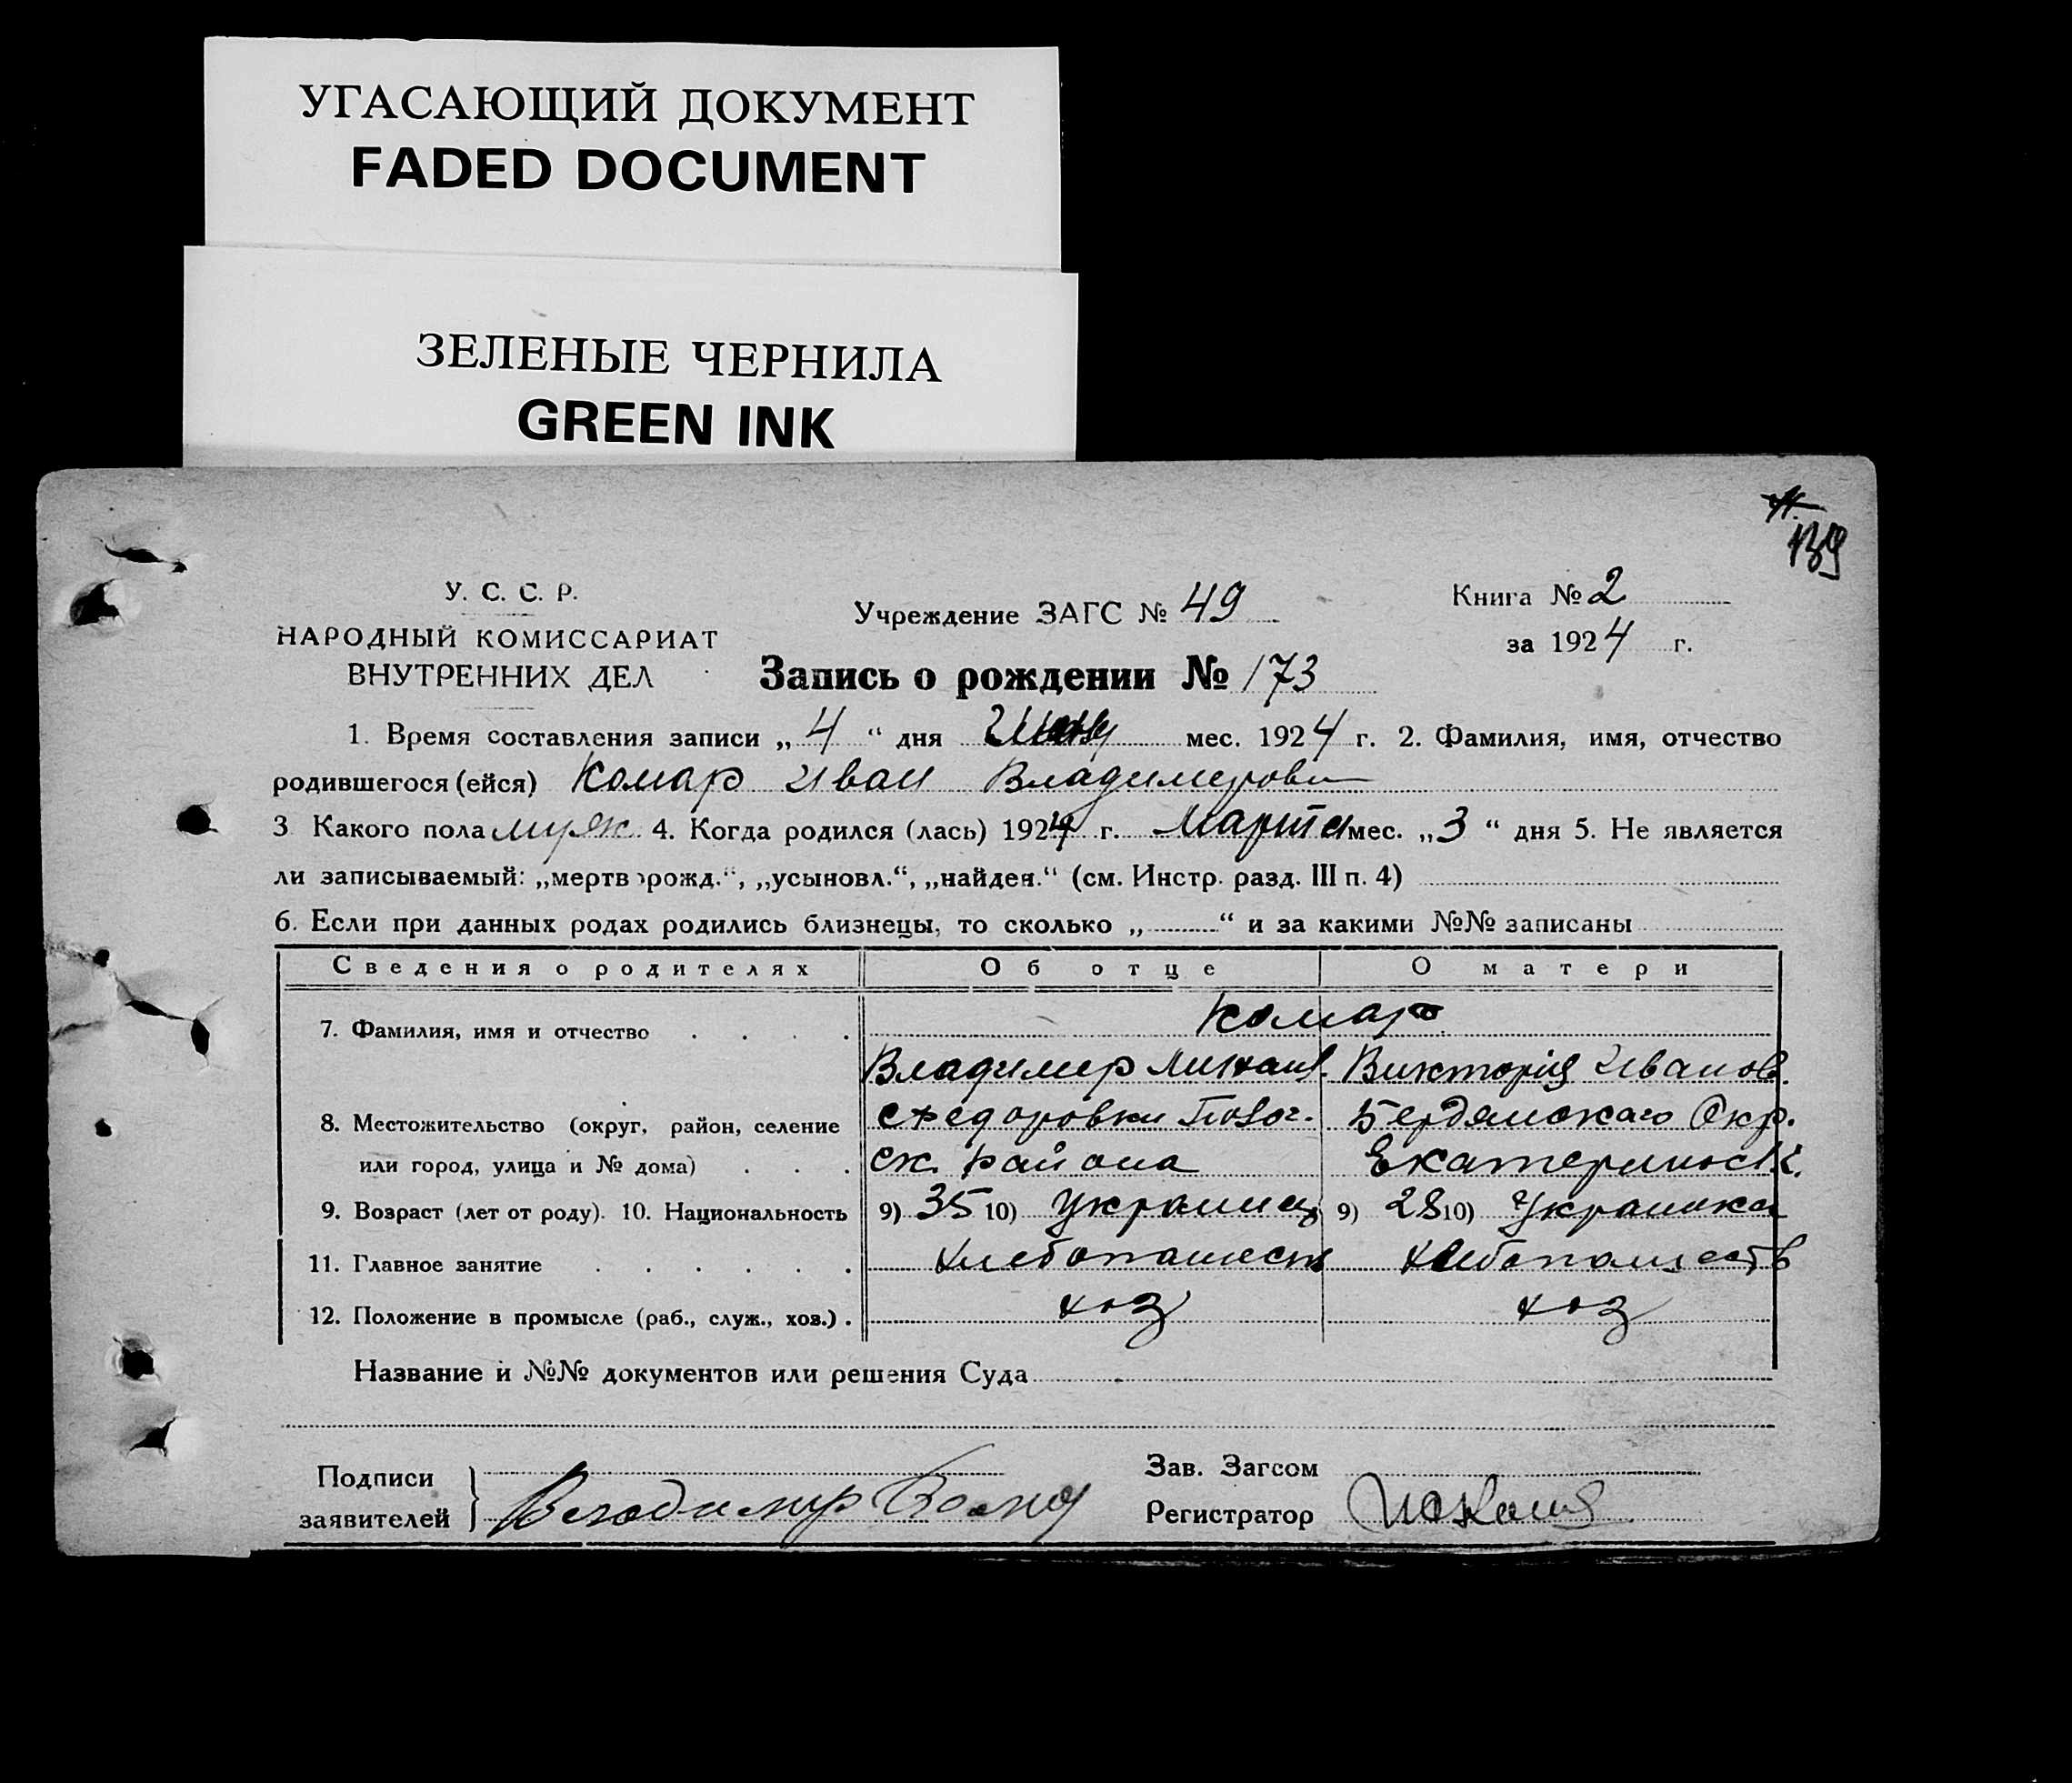 УГАСАЮЩИЙ ДОКУМЕНТ
FADED DOCUMENT
ЗЕЛЕНЫЕ ЧЕРНИЛА
GREEN INK
139
У. С. С. Р.
НАРОДНЫЙ КОМИССАРИАТ
ВНУТРЕННИХ ДЕЛ
Учреждение ЗАГС № 49
Книга № 2
за 1924 г.
Запись о рождении № 173
1. Время составления записи „ 4 “ дня мес. 1924 г. 2. Фамилия, имя, отчество
родившегося (ейся) Комар Иван Владимерови
3 Какого пола муж 4. Когда родился (лась) 1924 г. Марта мес. „3“ дня 5. Не является
ли записываемый: „мертворожд.“, „усыновл.“, „найден.“ (см. Инстр. разд. III п. 4)
6. Если при данных родах родились близнецы, то сколько „ “ и за какими №№ записаны
Сведения о родителях Об отце О матери
7. Фамилия, имя и отчество Комар
Владимер Михаил. Викторія Иванов.
8. Местожительство (округ, район, селение с Федоровки Бердянскаго Окр.
или город, улица и № дома) ск. района Екатериносл.
9. Возраст (лет от роду). 10. Национальность 9) 35 10) Украинец 9) 28 10) Украинка
11. Главное занятие хлебопашеств хлебопашеств
12. Положение в промысле (раб., служ., хоз.) хоз хоз
Название и №№ документов или решения Суда
Подписи
заявителей
Зав. Загсом
Регистратор